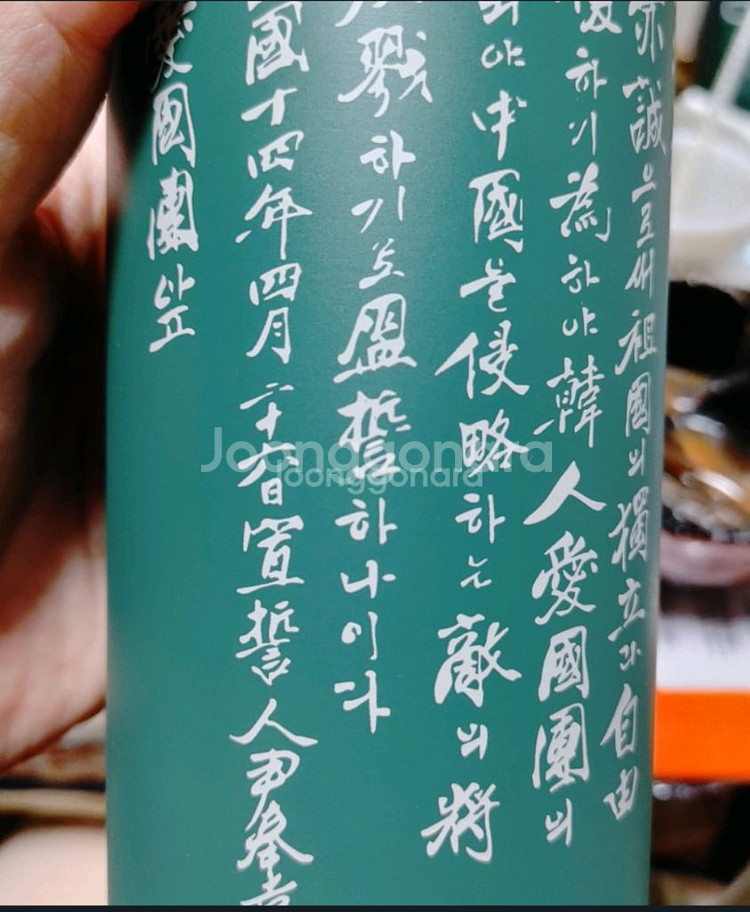 赤誠으로써祖國의獨立과自由
하기爲하야韓人愛國團의
의야中國을侵略하는敵의將
戮하기로盟誓하나이다
國十四年四月二十六日宣誓人尹奉吉
愛國團앞
Joonggonara
Joonggonara